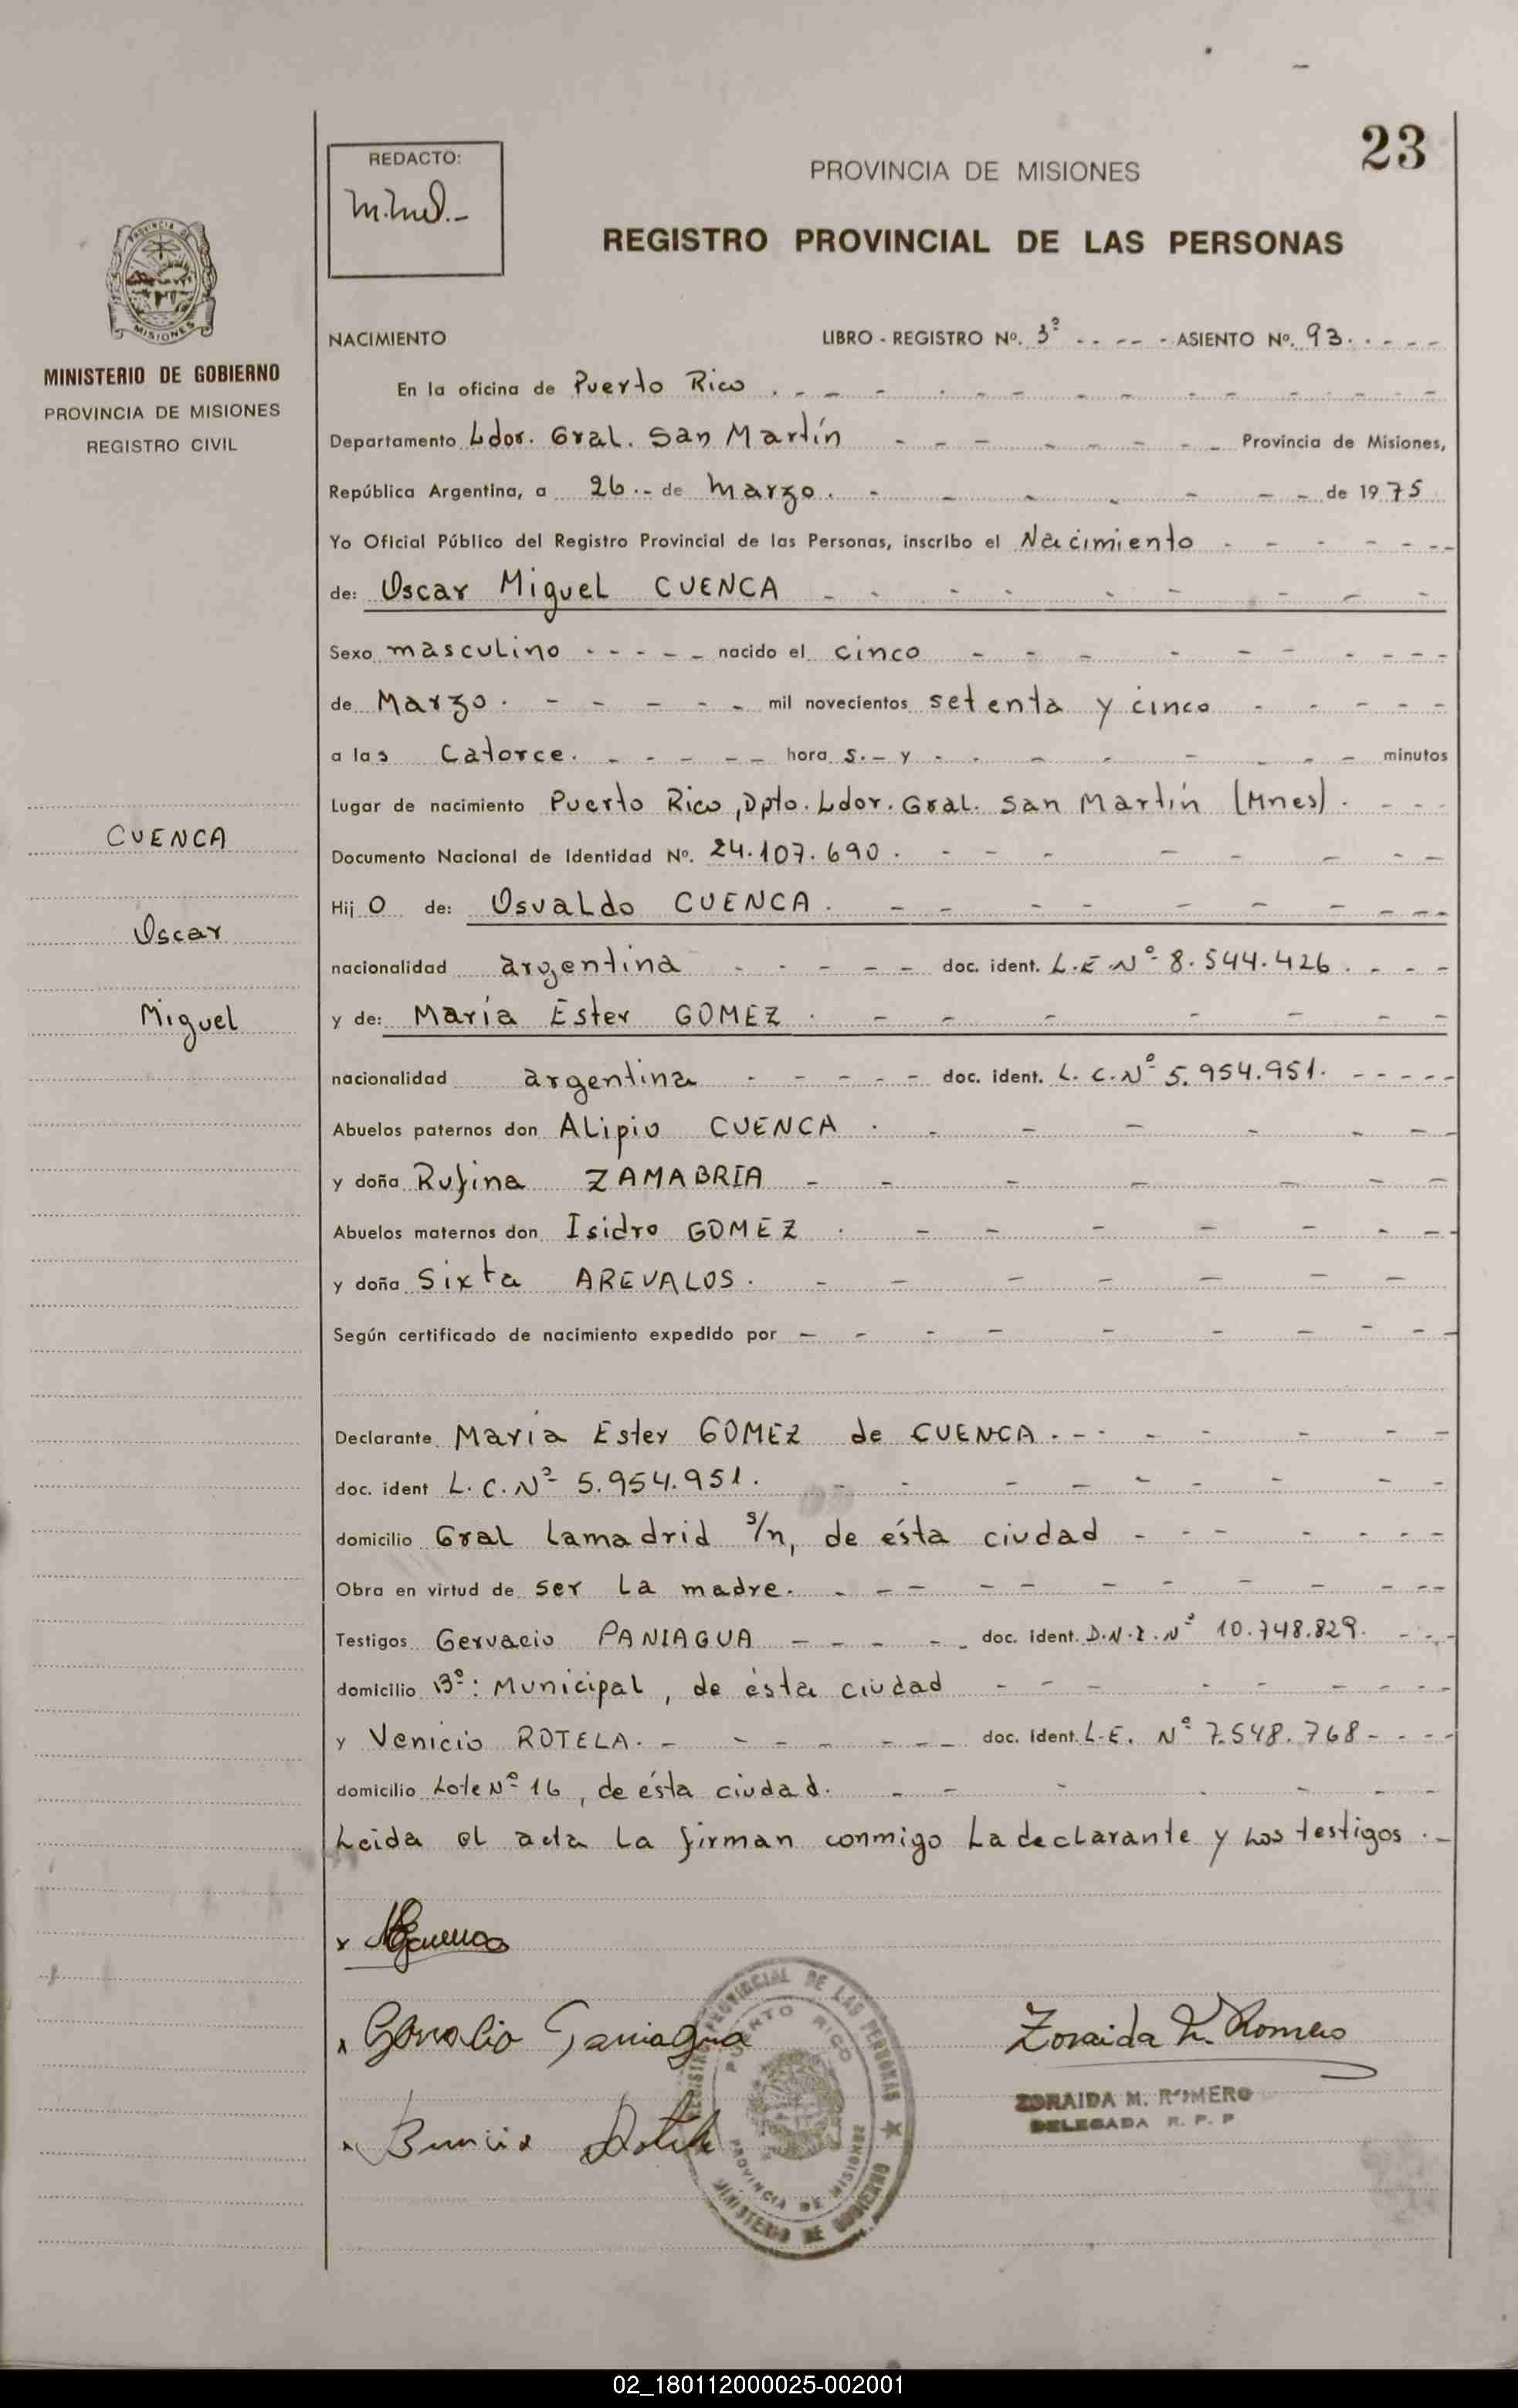 23
REDACTO:
PROVINCIA DE MISIONES
REGISTRO PROVINCIAL DE LAS PERSONAS
PROVINCIA DE
MISIONES
MINISTERIO DE GOBIERNO
PROVINCIA DE MISIONES
REGISTRO CIVIL
NACIMIENTO LIBRO - REGISTRO Nº. 3º - - - - - ASIENTO Nº. 93. - - - -
En la oficina de Puerto Rico
Departamento Ldor. Gral. San Martín - - - Provincia de Misiones,
República Argentina, a 26.- de Marzo. - - - de 1975
Yo Oficial Público del Registro Provincial de las Personas, inscribo el Nacimiento
de: Oscar Miguel CUENCA
Sexo masculino - - - - - nacido el cinco
de Marzo. - - - - - mil novecientos setenta y cinco
a las Catorce. - - - - - hora s.- y - - - minutos
Lugar de nacimiento Puerto Rico, Dpto. Ldor. Gral. San Martín (Mnes).
Documento Nacional de Identidad Nº. 24.107.690.
Hij o de: Osvaldo CUENCA.
nacionalidad argentina - - - - - doc. ident. L.E Nº 8.544.426.
y de: María Ester GOMEZ
nacionalidad argentina - - - - - doc. ident. L.C.Nº 5.954.951.
Abuelos paternos don Alipio CUENCA
y doña Rufina ZAMABRIA
Abuelos maternos don Isidro GOMEZ
y doña Sixta AREVALOS.
Según certificado de nacimiento expedido por
Declarante María Ester GOMEZ de CUENCA.
doc. ident L.C.Nº 5.954.951.
domicilio Gral Lamadrid s/n, de ésta ciudad
Obra en virtud de ser la madre.
Testigos Gervacio PANIAGUA - - - - doc. ident. D.N.I.Nº 10.748.829.
domicilio Bº: Municipal, de ésta ciudad
y Venicio ROTELA. - - - - doc. Ident. L.E. Nº 7.548.768
domicilio Lote Nº 16, de ésta ciudad.
Leida el acta la firman conmigo La declarante y Los testigos.-
CUENCA
Oscar
Miguel
Zoraida M. Romero
ZORAIDA M. ROMERO
DELEGADA R. P. P
REGISTRO PROVINCIAL DE LAS PERSONAS
PUERTO RICO
PROVINCIA DE MISIONES
MINISTERIO DE GOBIERNO
02_180112000025-002001